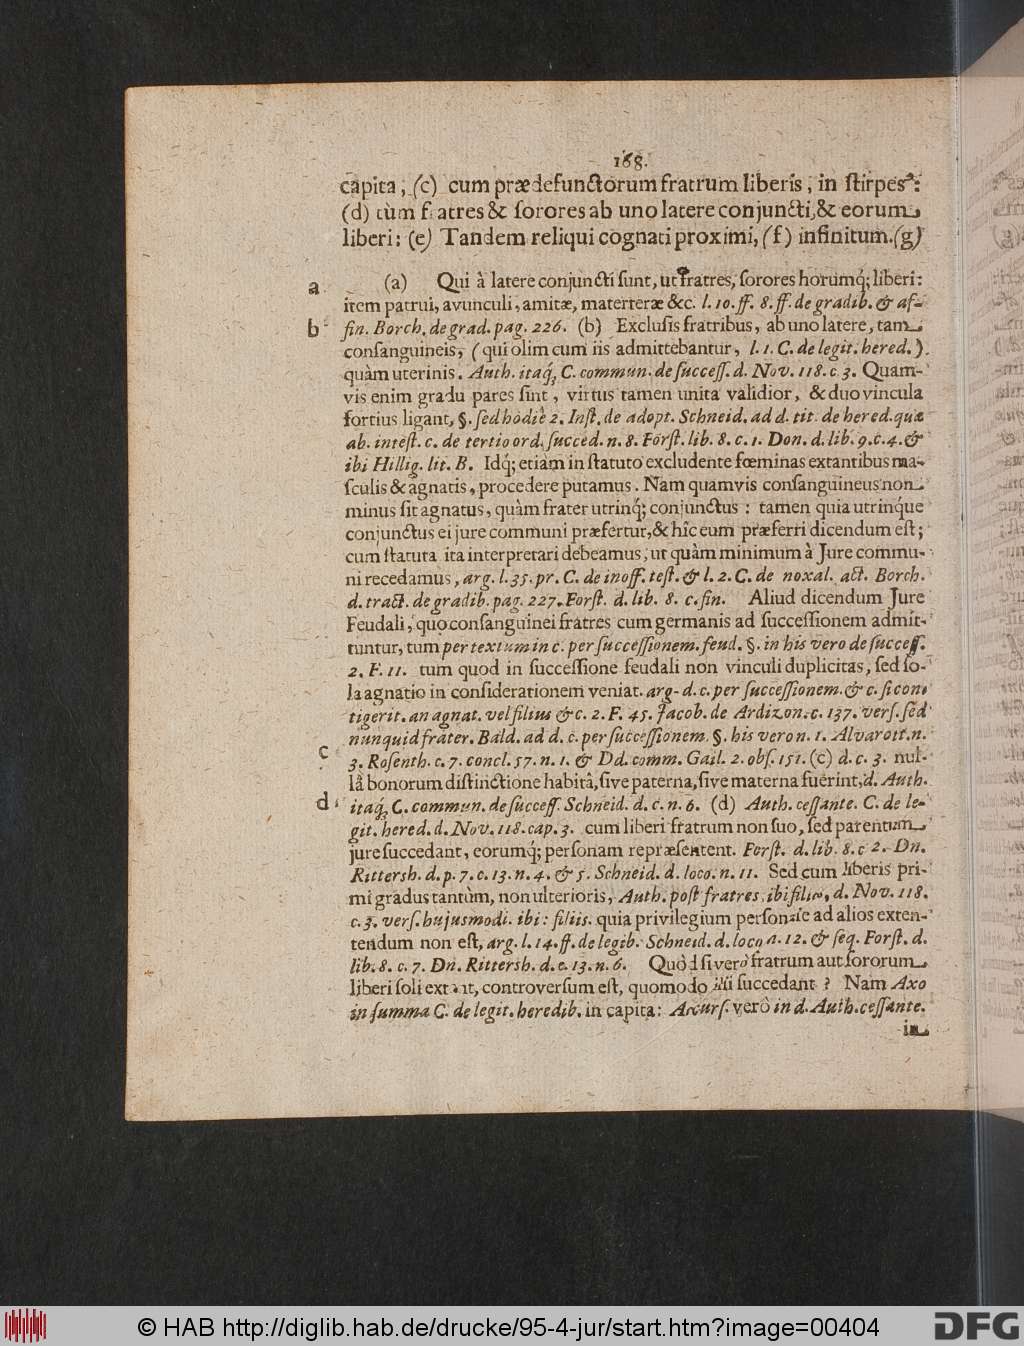 168.
capita, (c) cum prædefunctorum fratrum liberis, in ſtirpes:
(d) tùm fratres & ſorores ab uno latere conjuncti, & eorum
liberi: (e) Tandem reliqui cognati proximi, (f) infinitum. (g)
a (a) Qui à latere conjuncti ſunt, ut fratres, ſorores horumq́; liberi:
item patrui, avunculi, amitæ, materteræ &c. l. 10. ff. 8. ff. de gradib. & af-
b fin. Borch. de grad. pag. 226. (b) Excluſis fratribus, ab uno latere, tam
conſanguineis, (qui olim cum iis admittebantur, l. 1. C. de legit. hered.)
quàm uterinis. Auth. itaq́; C. commun. de ſucceſſ. d. Nov. 118. c 3. Quam-
vis enim gradu pares ſint, virtus tamen unita validior, & duo vincula
fortius ligant, §. ſed hodiè 2. Inſt. de adopt. Schneid. ad d. tit. de hered. quæ
ab. inteſt. c. de tertio ord. ſucced. n. 8. Forſt. lib. 8. c. 1. Don. d. lib. 9. c. 4. &
ibi Hillig. lit. B. Idq́; etiàm in ſtatuto excludente fœminas extantibus ma-
ſculis & agnatis, procedere putamus. Nam quamvis conſanguineus non
minus ſit agnatus, quàm frater utrinq́; conjunctus: tamen quia utrinq́ue
conjunctus ei jure communi præfertur, & hîc eum præferri dicendum eſt;
cum ſtatuta ita interpretari debeamus, ut quàm minimum à Jure commu-
ni recedamus, arg. l. 35. pr. C. de inoff. teſt. & l. 2. C. de noxal. act. Borch.
d. tract. de gradib. pag. 227. Forſt. d. lib. 8. c. fin. Aliud dicendum Jure
Feudali, quo conſanguinei fratres cum germanis ad ſucceſſionem admit-
tuntur, tum per textum in c. per ſucceſſionem. feud. §. in his vero de ſucceſſ.
2. F. 11. tum quod in ſucceſſione feudali non vinculi duplicitas, ſed ſo-
la agnatio in conſiderationem veniat. arg. d. c. per ſucceſſionem. & c. ſi con-
tigerit. an agnat. vel filius & c. 2. F. 45. Jacob. de Ardizon. c. 137. verſ. ſed
nunquid frater. Bald. ad d. c. per ſucceſſionem. §. his vero n. 1. Alvarott. n.
c 3. Roſenth. c. 7. concl. 57. n. 1. & Dd. comm. Gail. 2. obſ. 151. (c) d. c. 3. nul-
lâ bonorum diſtinctione habitâ, ſive paterna, ſive materna fuerint, d. Auth.
d itaq́; C. commun. de ſucceſſ. Schneid. d. c. n. 6. (d) Auth. ceſſante. C. de le-
git. hered. d. Nov. 118. cap. 3. cum liberi fratrum non ſuo, ſed parentum
jure ſuccedant, eorumq́; perſonam repræſentent. Forſt. d. lib. 8. c 2. Dn.
Rittersh. d. p. 7. c. 13. n. 4. & 5. Schneid. d. loco. n. 11. Sed cum liberis pri-
mi gradus tantùm, non ulterioris, Auth. poſt fratres. ibi filios, d. Nov. 118.
c. 3. verſ. hujusmodi. ibi: filiis. quia privilegium perſonale ad alios exten-
tendum non eſt, arg. l. 14. ff. de legib. Schneid. d. loco n. 12. & ſeq. Forſt. d.
lib. 8. c. 7. Dn. Rittersh. d. c. 13. n. 6. Quòd ſi verò fratrum aut ſororum
liberi ſoli extant, controverſum eſt, quomodo illi ſuccedant? Nam Azo
in ſumma C. de legit. heredib. in capita: Accurſ. verò in d. Auth. ceſſante.
in
© HAB http://diglib.hab.de/drucke/95-4-jur/start.htm?image=00404
DFG